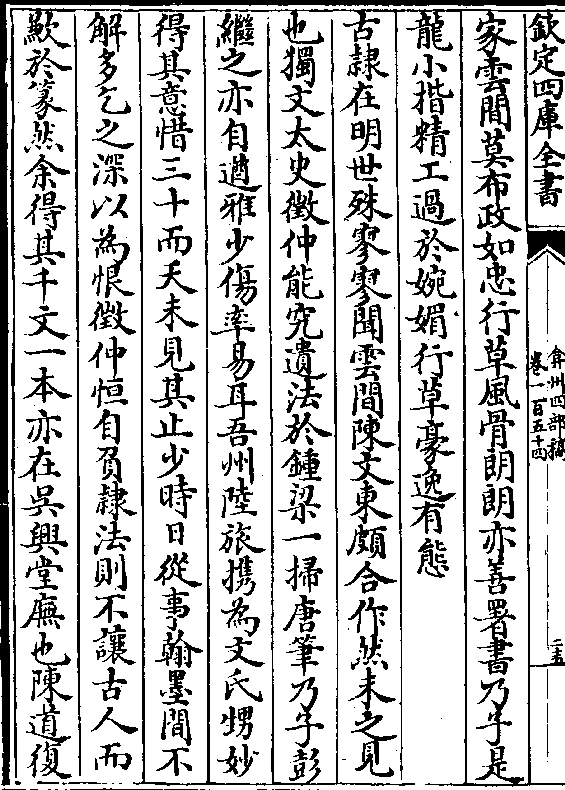 欽定四庫全書
弇州四部稿
卷一百五十四
二五
家雲間莫布政如忠行草風骨朗朗亦善署書乃子是
龍小揩精工過於婉媚行草豪逸有態
古隷在明世殊寥寥聞雲間陳文東頗合作然未之見
也獨文太史徵仲能究遺法於鍾梁一掃唐筆乃子彭
繼之亦自遒雅少傷率易耳吾州陸旅攜為文氏甥妙
得其意惜三十而夭未見其止少時日從事翰墨間不
解多乞之深以為恨徵仲恒自負隷法則不讓古人而
歉於篆然余得其千文一本亦在吳興堂廡也陳道復